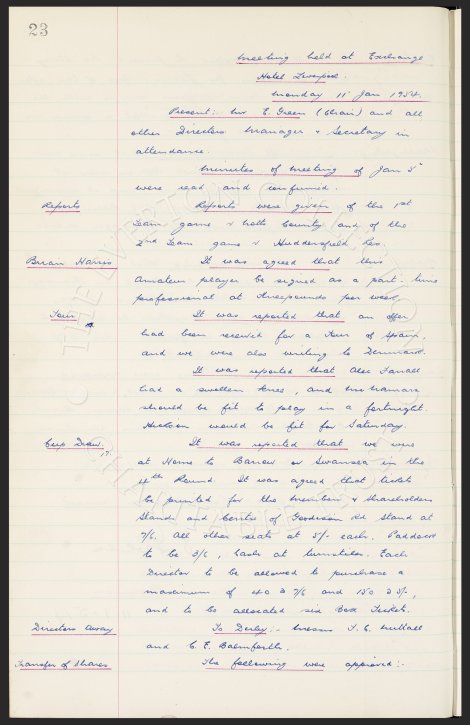 23
Meeting held at Exchange
Hotel Liverpool.
Monday 11 Jan 1954.
Present:- Mr E. Green (Chair) and all
other Directors Manager & Secretary in
attendance.
Minutes of meeting of Jan 5th
were read and confirmed.
Reports
Reports were given of the 1st
Team game v Notts County and of the
2nd Team game v Huddersfield Res.
Brian Harris
It was agreed that this
Amateur player be signed as a part-time
professional at three pounds per week.
Tour
It was reported that an offer
had been received for a Tour of Spain,
and we were also writing to Denmark.
It was reported that Alec Farrall
had a swollen knee, and
should be fit to play in a fortnight.
Hickson would be fit for Saturday.
Cup Draw.
It was reported that we were
at Home to Barrow or Swansea in the
4th Round. It was agreed that tickets
be printed for the Members & Shareholders
Stands and Centre of Goodison Rd Stand at
7/6. All other seats at 5/- each. Paddock
to be 3/6, cash at turnstiles. Each
Director to be allowed to purchase a
maximum of 40 @ 7/6 and 150 @ 5/-,
and to be allocated six Box Tickets.
Directors Away
To Derby:- Messrs T. C. Nuttall
and C. E. Balmforth.
Transfer of Shares
The following were approved:-
THE EVERTON COLLECTION
CHARITABLE TRUST